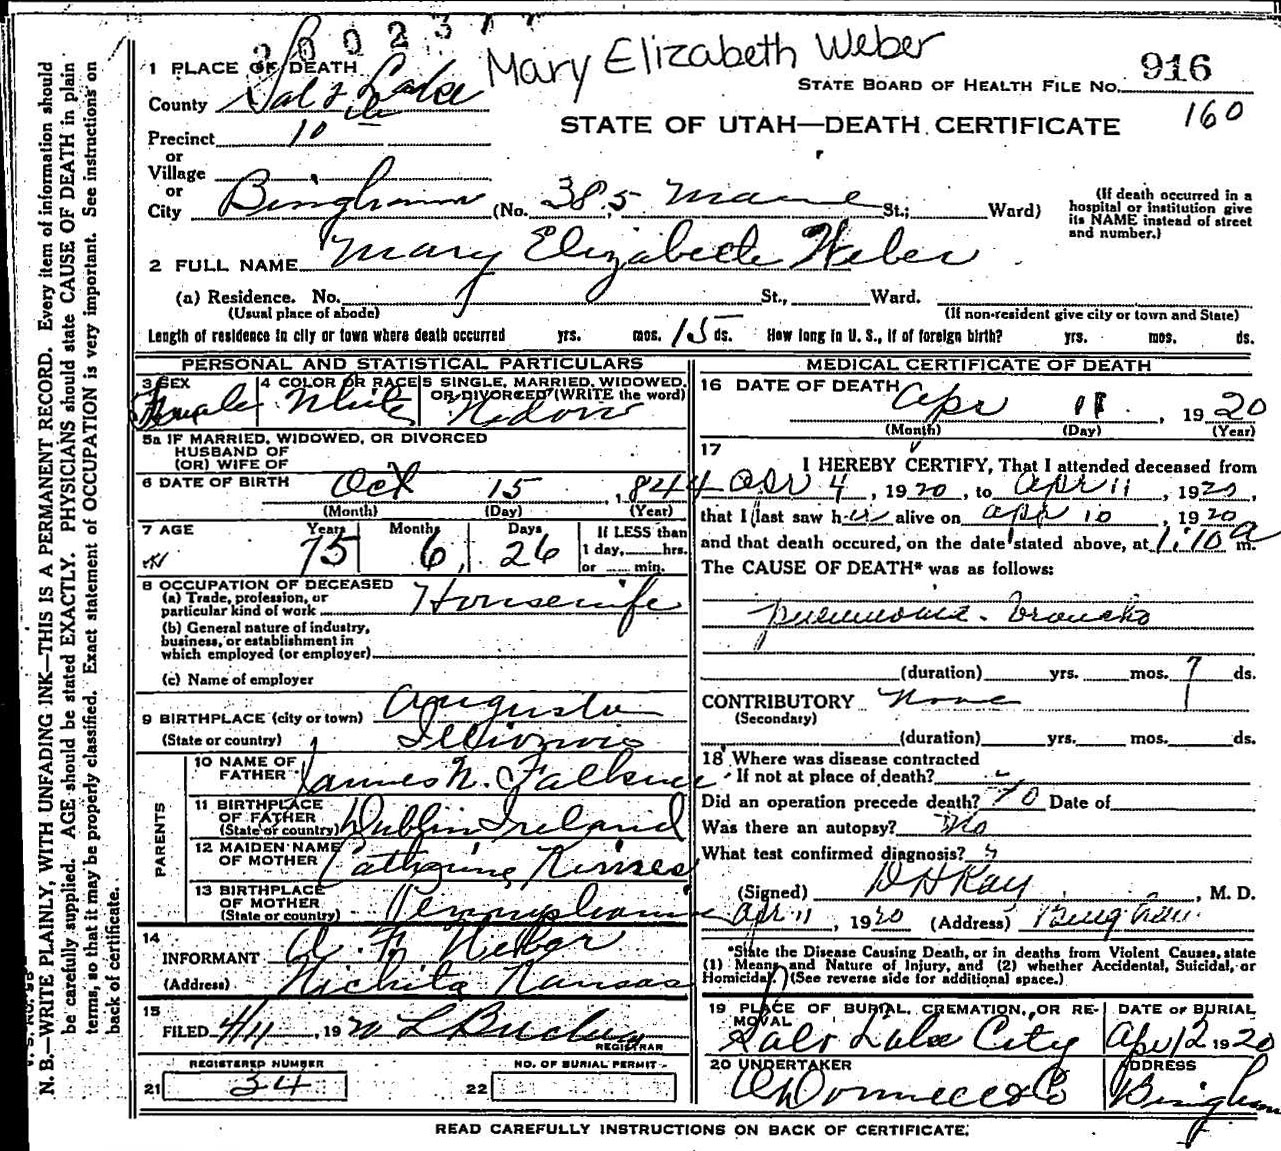 Mary Elizabeth Weber
916
STATE BOARD OF HEALTH FILE NO.
160
1 PLACE OF DEATH
County Salt Lake
STATE OF UTAH—DEATH CERTIFICATE
Precinct 10
or
Village
or
City Bingham (No. 385 Maine St.; Ward)
(If death occurred in a hospital or institution give its NAME instead of street and number.)
2 FULL NAME Mary Elizabeth Weber
(a) Residence. No. St., Ward.
(Usual place of abode) (If non-resident give city or town and State)
Length of residence in city or town where death occurred yrs. mos. 15 ds. How long in U. S., if of foreign birth? yrs. mos. ds.
PERSONAL AND STATISTICAL PARTICULARS
3 SEX Female
4 COLOR OR RACE White
5 SINGLE, MARRIED, WIDOWED, OR DIVORCED (WRITE the word) Widow
5a IF MARRIED, WIDOWED, OR DIVORCED
HUSBAND OF
(OR) WIFE OF
6 DATE OF BIRTH Oct 15, 1844
(Month) (Day) (Year)
7 AGE Years 75 Months 6 Days 26
If LESS than
1 day, hrs.
or min.
8 OCCUPATION OF DECEASED
(a) Trade, profession, or
particular kind of work Housewife
(b) General nature of industry,
business, or establishment in
which employed (or employer)
(c) Name of employer
9 BIRTHPLACE (city or town) Augusta
(State or country) Illionois
PARENTS
10 NAME OF
FATHER James N.
11 BIRTHPLACE
OF FATHER
(State or country) Dublin Ireland
12 MAIDEN NAME
OF MOTHER Catherine
13 BIRTHPLACE
OF MOTHER
(State or country) Pennsylvania
14
INFORMANT Weber
(Address) Wichita Kansas
15
FILED 4/11, 1920
REGISTRAR
REGISTERED NUMBER
21 34
NO. OF BURIAL PERMIT
22
MEDICAL CERTIFICATE OF DEATH
16 DATE OF DEATH Apr 11, 1920
(Month) (Day) (Year)
17
I HEREBY CERTIFY, That I attended deceased from
Apr 4, 1920, to Apr 11, 1920,
that I last saw her alive on Apr 10, 1920
and that death occured, on the date stated above, at 1:10 a m.
The CAUSE OF DEATH* was as follows:
Pneumonia - Broncho
(duration) yrs. mos. 7 ds.
CONTRIBUTORY None
(Secondary)
(duration) yrs. mos. ds.
18 Where was disease contracted
If not at place of death?
Did an operation precede death? No Date of
Was there an autopsy? No
What test confirmed diagnosis?
(Signed) D H Ray, M. D.
Apr 11, 1920 (Address) Bingham
*State the Disease Causing Death, or in deaths from Violent Causes, state
(1) Means and Nature of Injury, and (2) whether Accidental, Suicidal, or
Homicidal. (See reverse side for additional space.)
19 PLACE OF BURIAL, CREMATION, OR REMOVAL Salt Lake City
DATE OF BURIAL Apr 12 1920
20 UNDERTAKER O'Donnell & Co
ADDRESS Bingham
READ CAREFULLY INSTRUCTIONS ON BACK OF CERTIFICATE.
N. B.—WRITE PLAINLY, WITH UNFADING INK—THIS IS A PERMANENT RECORD. Every item of information should
be carefully supplied. AGE should be stated EXACTLY. PHYSICIANS should state CAUSE OF DEATH in plain
terms, so that it may be properly classified. Exact statement of OCCUPATION is very important. See instructions on
back of certificate.